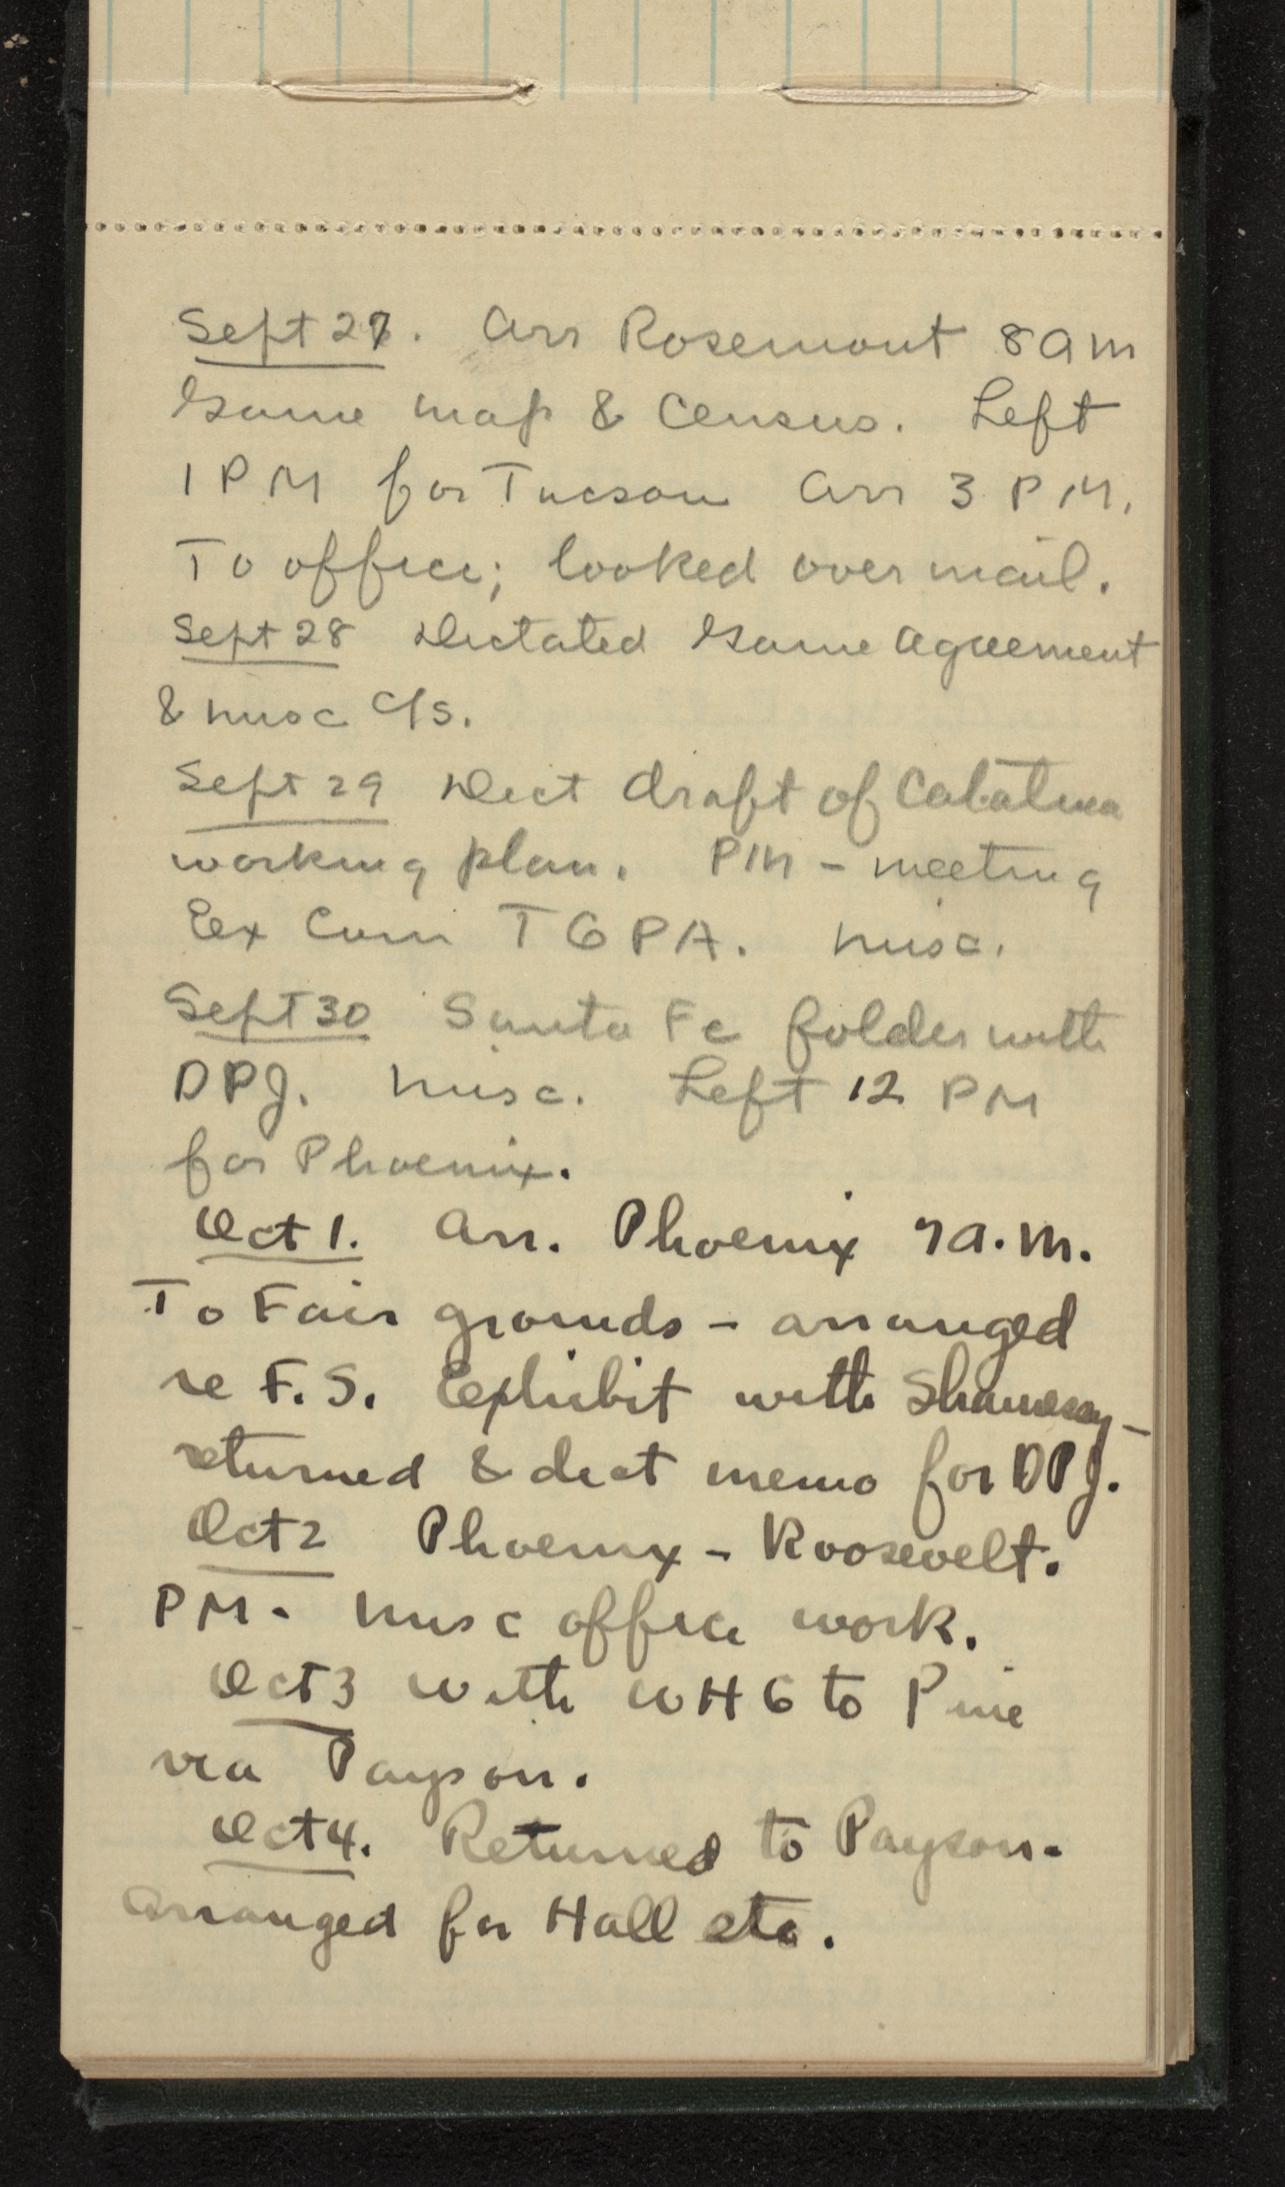 Sept 27. Arr Rosemont 8 am
Game map & Census. Left
1 PM for Tucson Arr 3 PM.
To office; looked over mail.
Sept 28 Dictated Game Agreement
& misc c/s.
Sept 29 Dict draft of Catalina
working plan. PM - meeting
Ex Com TGPA. Misc.
Sept 30 Santa Fe folder with
DPJ. Misc. Left 12 PM
for Phoenix.
Oct 1. Arr. Phoenix 7 a.m.
To Fair grounds - arranged
re F.S. Exhibit with
returned & dict memo for DPJ.
Oct 2 Phoenix - Roosevelt.
PM - Misc office work.
Oct 3 with WHG to Pine
via Payson.
Oct 4. Returned to Payson.
Arranged for Hall etc.